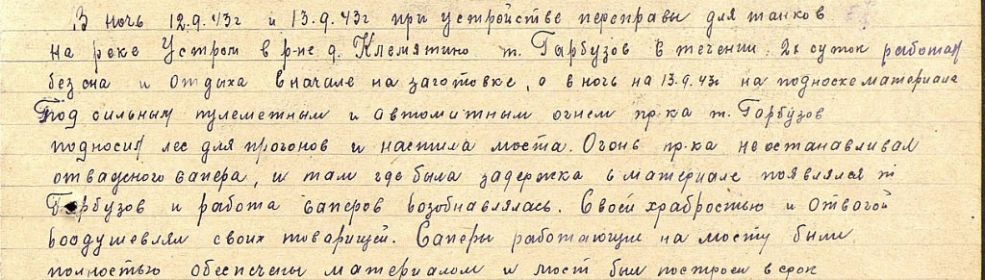 В ночь 12.9.43г и 13.9.43г при устройстве переправы для танков
на реке Устром в р-не д. Клемятино т. Гарбузов в течении 2х суток работал
без сна и отдыха вначале на заготовке, а в ночь на 13.9.43г на подноске материала
Под сильным пулеметным и автоматным огнем пр-ка т. Гарбузов
подносил лес для прогонов и настила моста. Огонь пр-ка не останавливал
отважного сапера, и там где была задержка в материале появлялся т
Гарбузов и работа саперов возобнавлялась. Своей храбростью и отвагой
воодушевлял своих товарищей. Саперы работающие на мосту были
полностью обеспечены материалом и мост был построен в срок